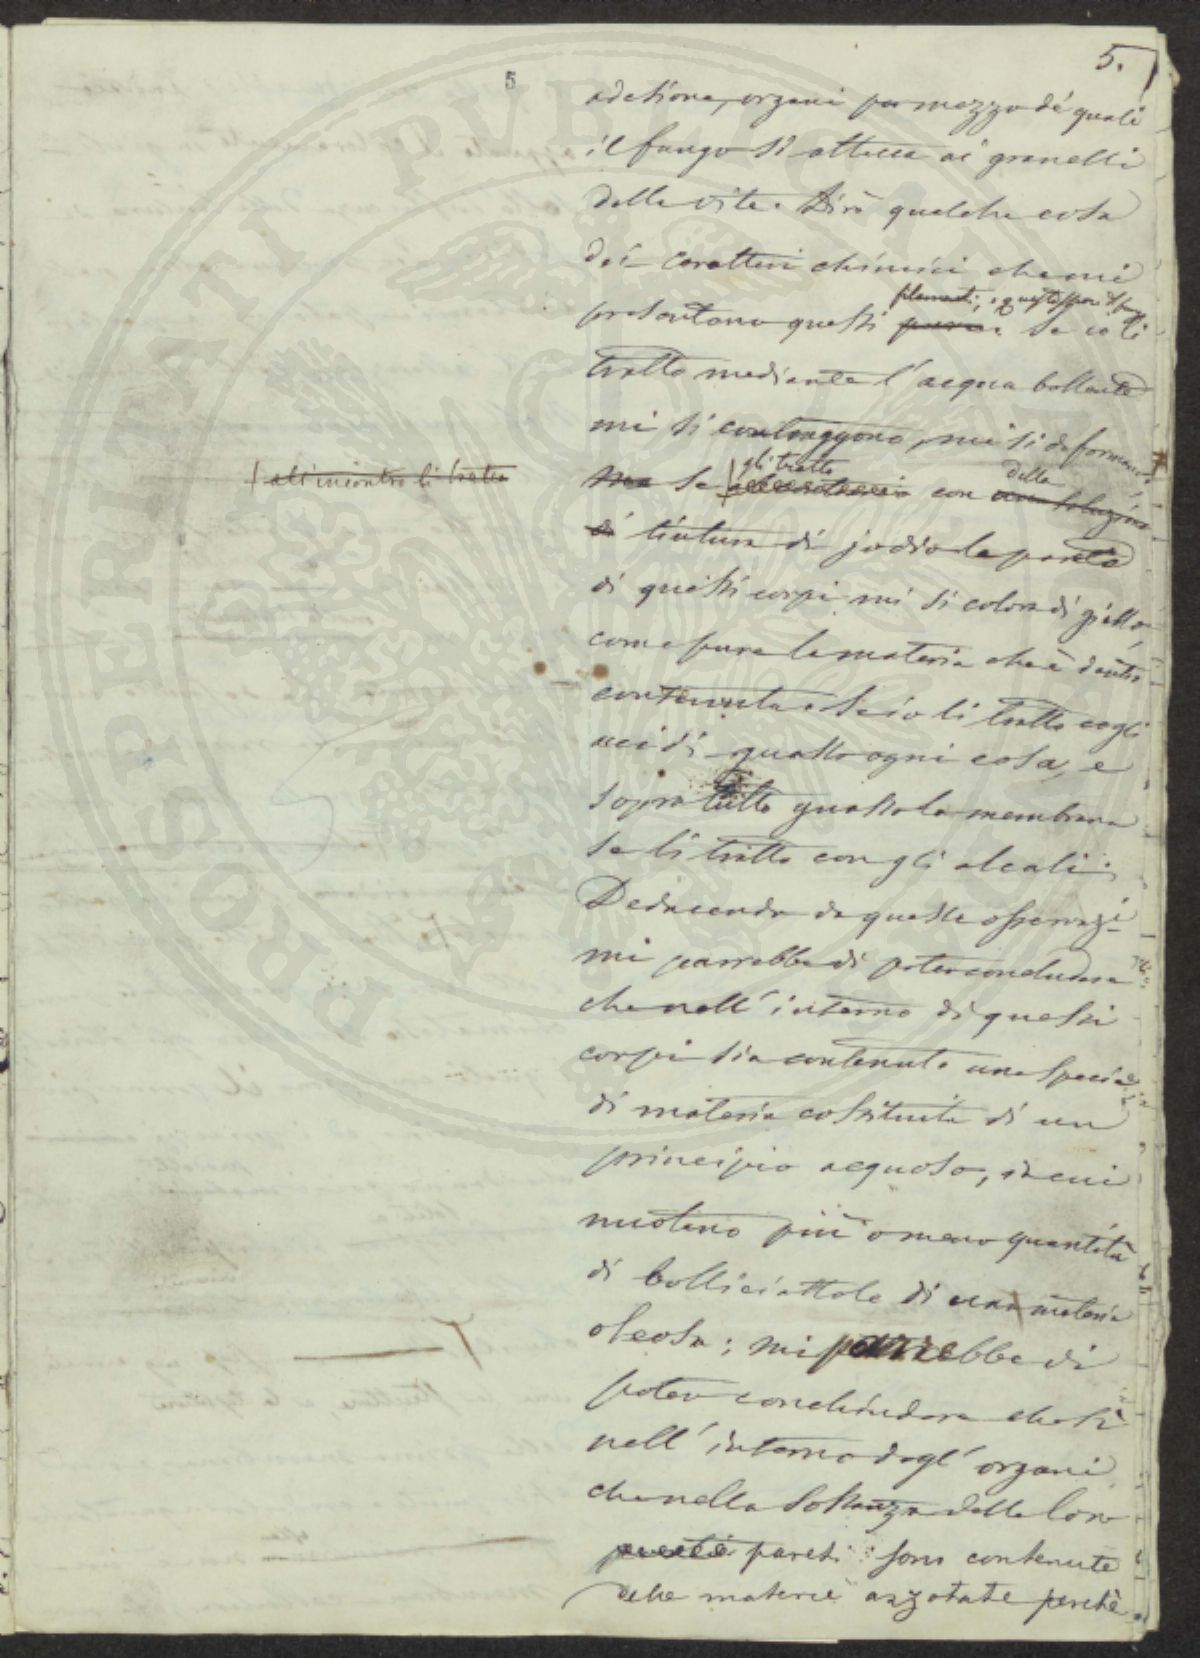 5.
5
adesione, organi per mezzo de' quali
il fungo si attacca ai granelli
della vite. Dirò qualche cosa
dei caratteri chimici che mi
filamenti, e queste spore. Se
presentano questi se io li
tratto mediante l'acqua bollente
mi si contraggono, mi si deformano
gli tratto della
ma se con una soluzione
all'incontro li tratto
di tintura di jodio le parete
di questi corpi mi si colora di giallo,
come pure la materia che è dentro
contenuta. Se io li tratto cogli
acidi guasto ogni cosa, e
sopra tutto guasto la membrana
se li tratto con gli alcali.
Deducendo da queste osservazi
mi parrebbe di poter concludere
che nell'interno di questi
corpi sia contenuto una specie
di materia costituita di un
principio acquoso, in cui
nuotano più o meno quantità
di bolliciattole di una materia
oleosa; mi parrebbe di
poter conchiudere che sì
nell'interno degl'organi
che nella sostanza delle loro
pareti sono contenute
che materie azzotate perchè
PROSPERITATI PVBLICAE